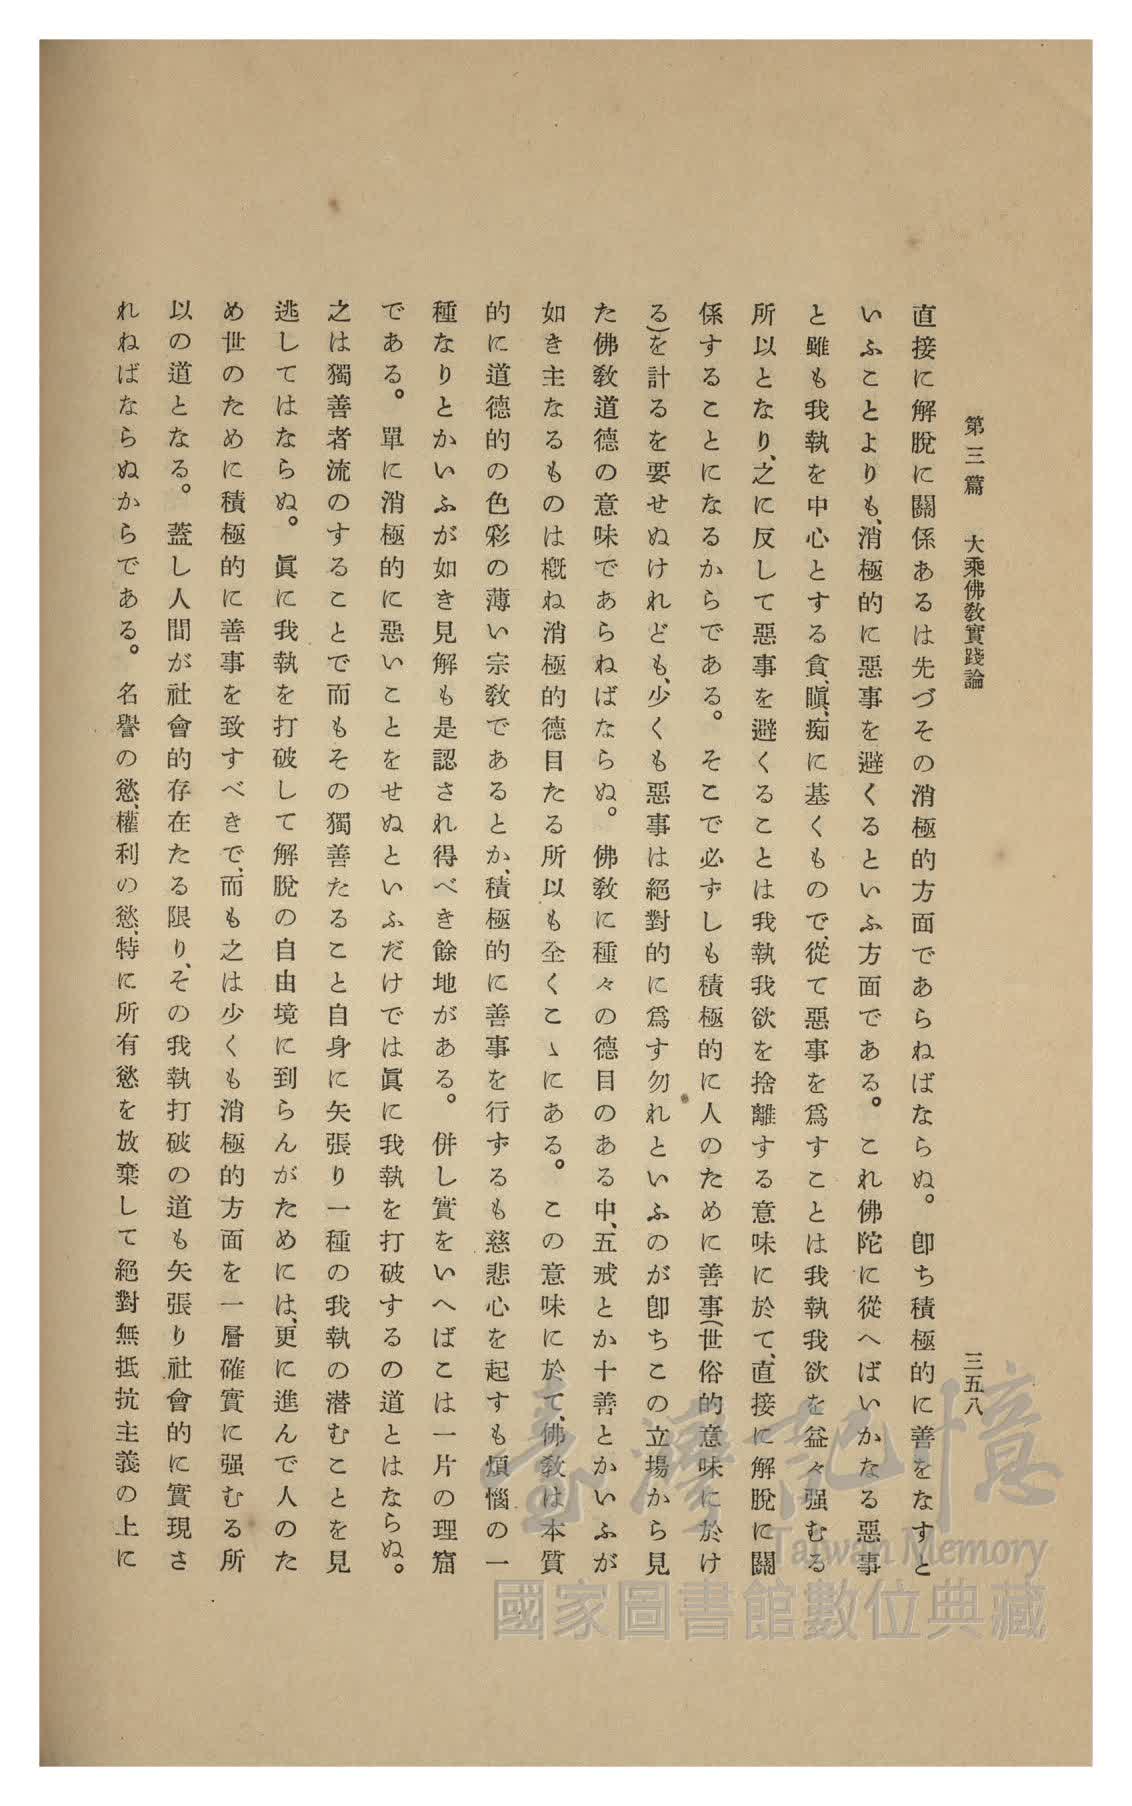 第三篇　大乘佛敎實踐論　三五八
直接に解脫に關係あるは先づその消極的方面であらねばならぬ。卽ち積極的に善をなすと
いふことよりも、消極的に惡事を避くるといふ方面である。これ佛陀に從へばいかなる惡事
と雖も我執を中心とする貪、瞋、痴に基くもので、從て惡事を爲すことは我執我欲を益々强むる
所以となり、之に反して惡事を避くることは我執我欲を捨離する意味に於て、直接に解脫に關
係することになるからである。そこで必ずしも積極的に人のために善事（世俗的意味に於け
る）を計るを要せぬけれども、少くも惡事は絕對的に爲す勿れといふのが卽ちこの立場から見
た佛敎道德の意味であらねばならぬ。佛敎に種々の德目のある中、五戒とか十善とかいふが
如き主なるものは槪ね消極的德目たる所以も全くこゝにある。この意味に於て、佛敎は本質
的に道德的の色彩の薄い宗敎であるとか、積極的に善事を行ずるも慈悲心を起すも煩惱の一
種なりとかいふが如き見解も是認され得べき餘地がある。併し實をいへばこは一片の理窟
である。單に消極的に惡いことをせぬといふだけでは眞に我執を打破するの道とはならぬ。
之は獨善者流のすることで而もその獨善たること自身に矢張り一種の我執の潛むことを見
逃してはならぬ。眞に我執を打破して解脫の自由境に到らんがためには、更に進んで人のた
め世のために積極的に善事を致すべきで、而も之は少くも消極的方面を一層確實に强むる所
以の道となる。蓋し人間が社會的存在たる限り、その我執打破の道も矢張り社會的に實現さ
れねばならぬからである。名譽の慾、權利の慾、特に所有慾を放棄して絕對無抵抗主義の上に
臺灣記憶
Taiwan Memory
國家圖書館數位典藏